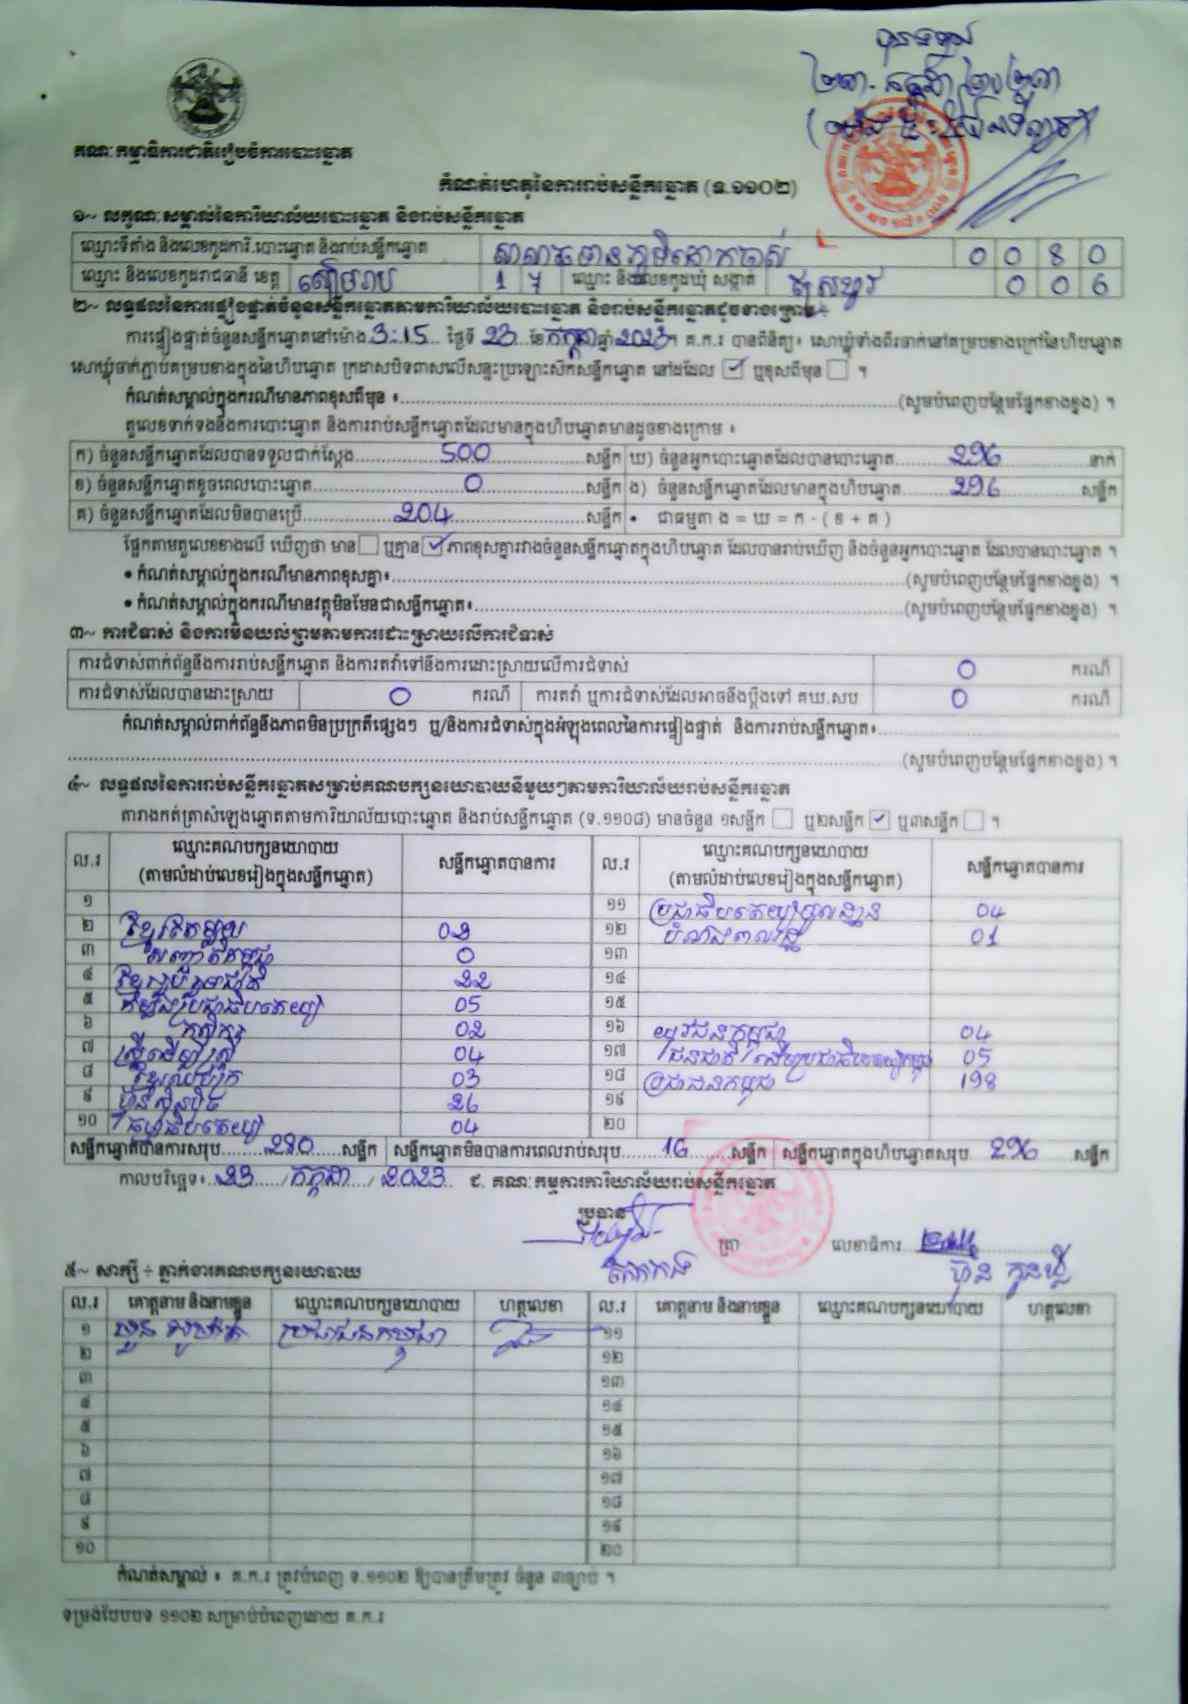 គណៈកម្មាធិការជាតិរៀបចំការបោះឆ្នោត
កំណត់ហេតុនៃការរាប់សន្លឹកឆ្នោត (ទ.១១០២)
១~ លក្ខណៈសម្គាល់នៃការិយាល័យបោះឆ្នោត និងរាប់សន្លឹកឆ្នោត
ឈ្មោះទីតាំង និងលេខកូដការិ.បោះឆ្នោត និងរាប់សន្លឹកឆ្នោត 0 0 8 0
ឈ្មោះ និងលេខកូដរាជធានី ខេត្ត សៀមរាប 1 7 ឈ្មោះ និងលេខកូដឃុំ សង្កាត់ 0 0 6
២~ លទ្ធផលនៃការផ្ទៀងផ្ទាត់ចំនួនសន្លឹកឆ្នោតតាមការិយាល័យបោះឆ្នោត និងរាប់សន្លឹកឆ្នោតដូចខាងក្រោម ÷
ការផ្ទៀងផ្ទាត់ចំនួនសន្លឹកឆ្នោតនៅម៉ោង 3:15 ថ្ងៃទី 23 ខែ កក្កដា ឆ្នាំ 2023។ គ.ក.រ បានពិនិត្យ៖ សោឃ្លុំទាំងពីរចាក់នៅគម្របខាងក្រៅនៃហិបឆ្នោត
សោឃ្លុំចាក់ភ្ជាប់គម្របខាងក្នុងនៃហិបឆ្នោត ក្រដាសបិទពាសលើសន្ទះប្រឡោះសឹកសន្លឹកឆ្នោត នៅដដែល ☑ ឬខុសពីមុន ☐ ។
កំណត់សម្គាល់ក្នុងករណីមានភាពខុសពីមុន ៖ (សូមបំពេញបន្ថែមផ្នែកខាងខ្នង) ។
តួលេខទាក់ទងនឹងការបោះឆ្នោត និងការរាប់សន្លឹកឆ្នោតដែលមានក្នុងហិបឆ្នោតមានដូចខាងក្រោម ៖
ក) ចំនួនសន្លឹកឆ្នោតដែលបានទទួលជាក់ស្តែង 500 សន្លឹក ឃ) ចំនួនអ្នកបោះឆ្នោតដែលបានបោះឆ្នោត 296 នាក់
ខ) ចំនួនសន្លឹកឆ្នោតខូចពេលបោះឆ្នោត 0 សន្លឹក ង) ចំនួនសន្លឹកឆ្នោតដែលមានក្នុងហិបឆ្នោត 296 សន្លឹក
គ) ចំនួនសន្លឹកឆ្នោតដែលមិនបានប្រើ 204 សន្លឹក • ជាធម្មតា ង = ឃ = ក - ( ខ + គ )
ផ្អែកតាមតួលេខខាងលើ ឃើញថា មាន ☐ ឬគ្មាន ☑ ភាពខុសគ្នារវាងចំនួនសន្លឹកឆ្នោតក្នុងហិបឆ្នោត ដែលបានរាប់ឃើញ និងចំនួនអ្នកបោះឆ្នោត ដែលបានបោះឆ្នោត ។
• កំណត់សម្គាល់ក្នុងករណីមានភាពខុសគ្នា៖ (សូមបំពេញបន្ថែមផ្នែកខាងខ្នង) ។
• កំណត់សម្គាល់ក្នុងករណីមានវត្ថុមិនមែនជាសន្លឹកឆ្នោត៖ (សូមបំពេញបន្ថែមផ្នែកខាងខ្នង) ។
៣~ ការជំទាស់ និងការមិនយល់ព្រមតាមការដោះស្រាយលើការជំទាស់
ការជំទាស់ពាក់ព័ន្ធនឹងការរាប់សន្លឹកឆ្នោត និងការតវ៉ាទៅនឹងការដោះស្រាយលើការជំទាស់ 0 ករណី
ការជំទាស់ដែលបានដោះស្រាយ 0 ករណី ការតវ៉ា ឬការជំទាស់ដែលអាចនឹងប្តឹងទៅ គឃ.សប 0 ករណី
កំណត់សម្គាល់ពាក់ព័ន្ធនឹងភាពមិនប្រក្រតីផ្សេងៗ ឬ/និងការជំទាស់ក្នុងអំឡុងពេលនៃការផ្ទៀងផ្ទាត់ និងការរាប់សន្លឹកឆ្នោត៖
(សូមបំពេញបន្ថែមផ្នែកខាងខ្នង) ។
៤~ លទ្ធផលនៃការរាប់សន្លឹកឆ្នោតសម្រាប់គណបក្សនយោបាយនីមួយៗតាមការិយាល័យរាប់សន្លឹកឆ្នោត
តារាងកត់ត្រាសំឡេងឆ្នោតតាមការិយាល័យបោះឆ្នោត និងរាប់សន្លឹកឆ្នោត (ទ.១១០៨) មានចំនួន ១សន្លឹក ☐ ឬ២សន្លឹក ☑ ឬ៣សន្លឹក ☐ ។
ល.រ ឈ្មោះគណបក្សនយោបាយ (តាមលំដាប់លេខរៀងក្នុងសន្លឹកឆ្នោត) សន្លឹកឆ្នោតបានការ ល.រ ឈ្មោះគណបក្សនយោបាយ (តាមលំដាប់លេខរៀងក្នុងសន្លឹកឆ្នោត) សន្លឹកឆ្នោតបានការ
១ ១១ ប្រជាធិបតេយ្យមូលដ្ឋាន 04
២ ខ្មែរតែមួយ 02 ១២ 01
៣ សញ្ជាតិកម្ពុជា 0 ១៣
៤ ខ្មែររួបរួមជាតិ 22 ១៤
៥ ប្រជាធិបតេយ្យ 05 ១៥
៦ កសិករ 02 ១៦ យុវជនកម្ពុជា 04
៧ ស្ត្រីដើម្បីស្ត្រី 04 ១៧ 05
៨ 03 ១៨ ប្រជាជនកម្ពុជា 198
៩ ហ៊្វុនស៊ិនប៉ិច 26 ១៩
១០ ធម្មាធិបតេយ្យ 04 ២០
សន្លឹកឆ្នោតបានការសរុប 280 សន្លឹក សន្លឹកឆ្នោតមិនបានការពេលរាប់សរុប 16 សន្លឹក សន្លឹកឆ្នោតក្នុងហិបឆ្នោតសរុប 296 សន្លឹក
កាលបរិច្ឆេទ៖ 23 / កក្កដា / 2023 ជ. គណៈកម្មការការិយាល័យរាប់សន្លឹកឆ្នោត
ប្រធាន
ត្រា លេខាធិការ
៥~ សាក្សី ÷ ភ្នាក់ងារគណបក្សនយោបាយ
ល.រ គោត្តនាម និងនាមខ្លួន ឈ្មោះគណបក្សនយោបាយ ហត្ថលេខា ល.រ គោត្តនាម និងនាមខ្លួន ឈ្មោះគណបក្សនយោបាយ ហត្ថលេខា
១ ប្រជាជនកម្ពុជា ១១
២ ១២
៣ ១៣
៤ ១៤
៥ ១៥
៦ ១៦
៧ ១៧
៨ ១៨
៩ ១៩
១០ ២០
កំណត់សម្គាល់ ៖ គ.ក.រ ត្រូវបំពេញ ទ.១១០២ ឱ្យបានត្រឹមត្រូវ ចំនួន ៣ច្បាប់ ។
ទម្រង់បែបបទ ១១០២ សម្រាប់បំពេញដោយ គ.ក.រ